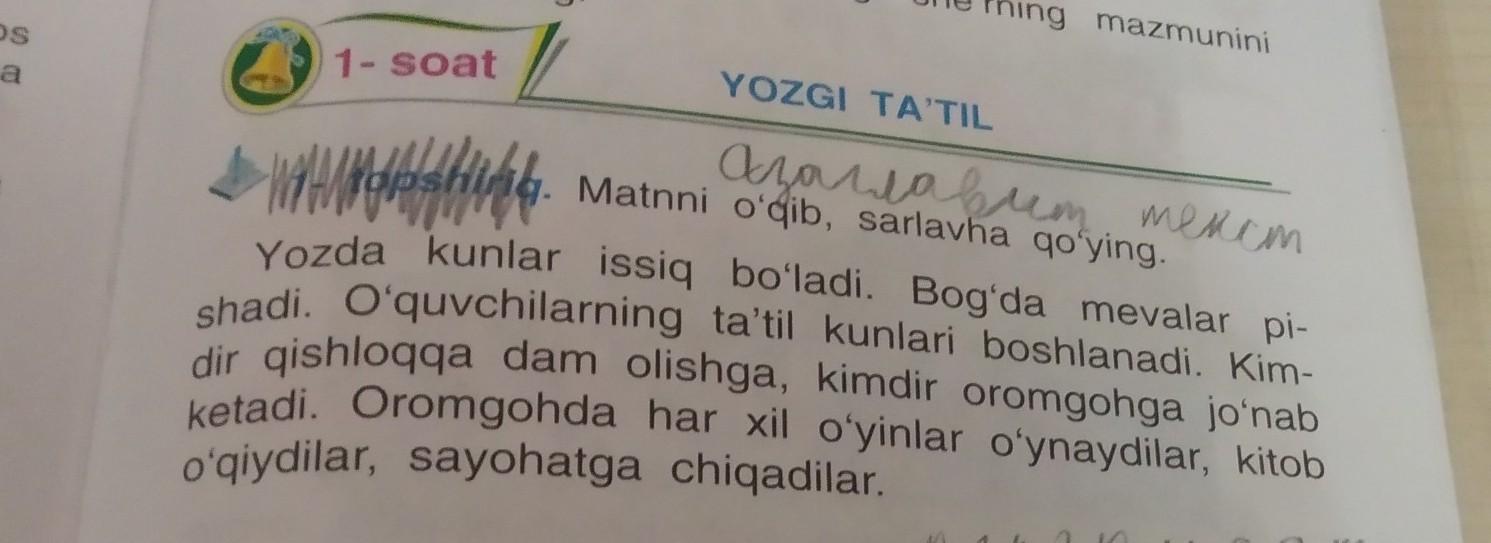 os
a
rning mazmunini
1- soat
YOZGI TA'TIL
озаглавит текст
1- topshiriq. Matnni o‘qib, sarlavha qo‘ying.
Yozda kunlar issiq bo‘ladi. Bog‘da mevalar pi-
shadi. O‘quvchilarning ta’til kunlari boshlanadi. Kim-
dir qishloqqa dam olishga, kimdir oromgohga jo‘nab
ketadi. Oromgohda har xil o‘yinlar o‘ynaydilar, kitob
o‘qiydilar, sayohatga chiqadilar.